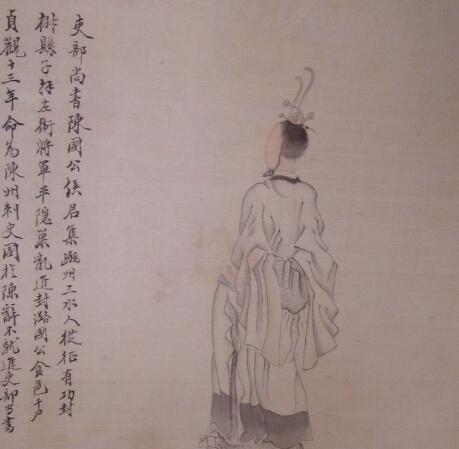 吏部尚書陳國公侯君集豳州三水人從征有功封
椒縣子拜左衛將軍平隱巢亂進封潞國公食邑千戶
貞觀十三年命為陳州刺史國於陳辭不就進吏部尚書